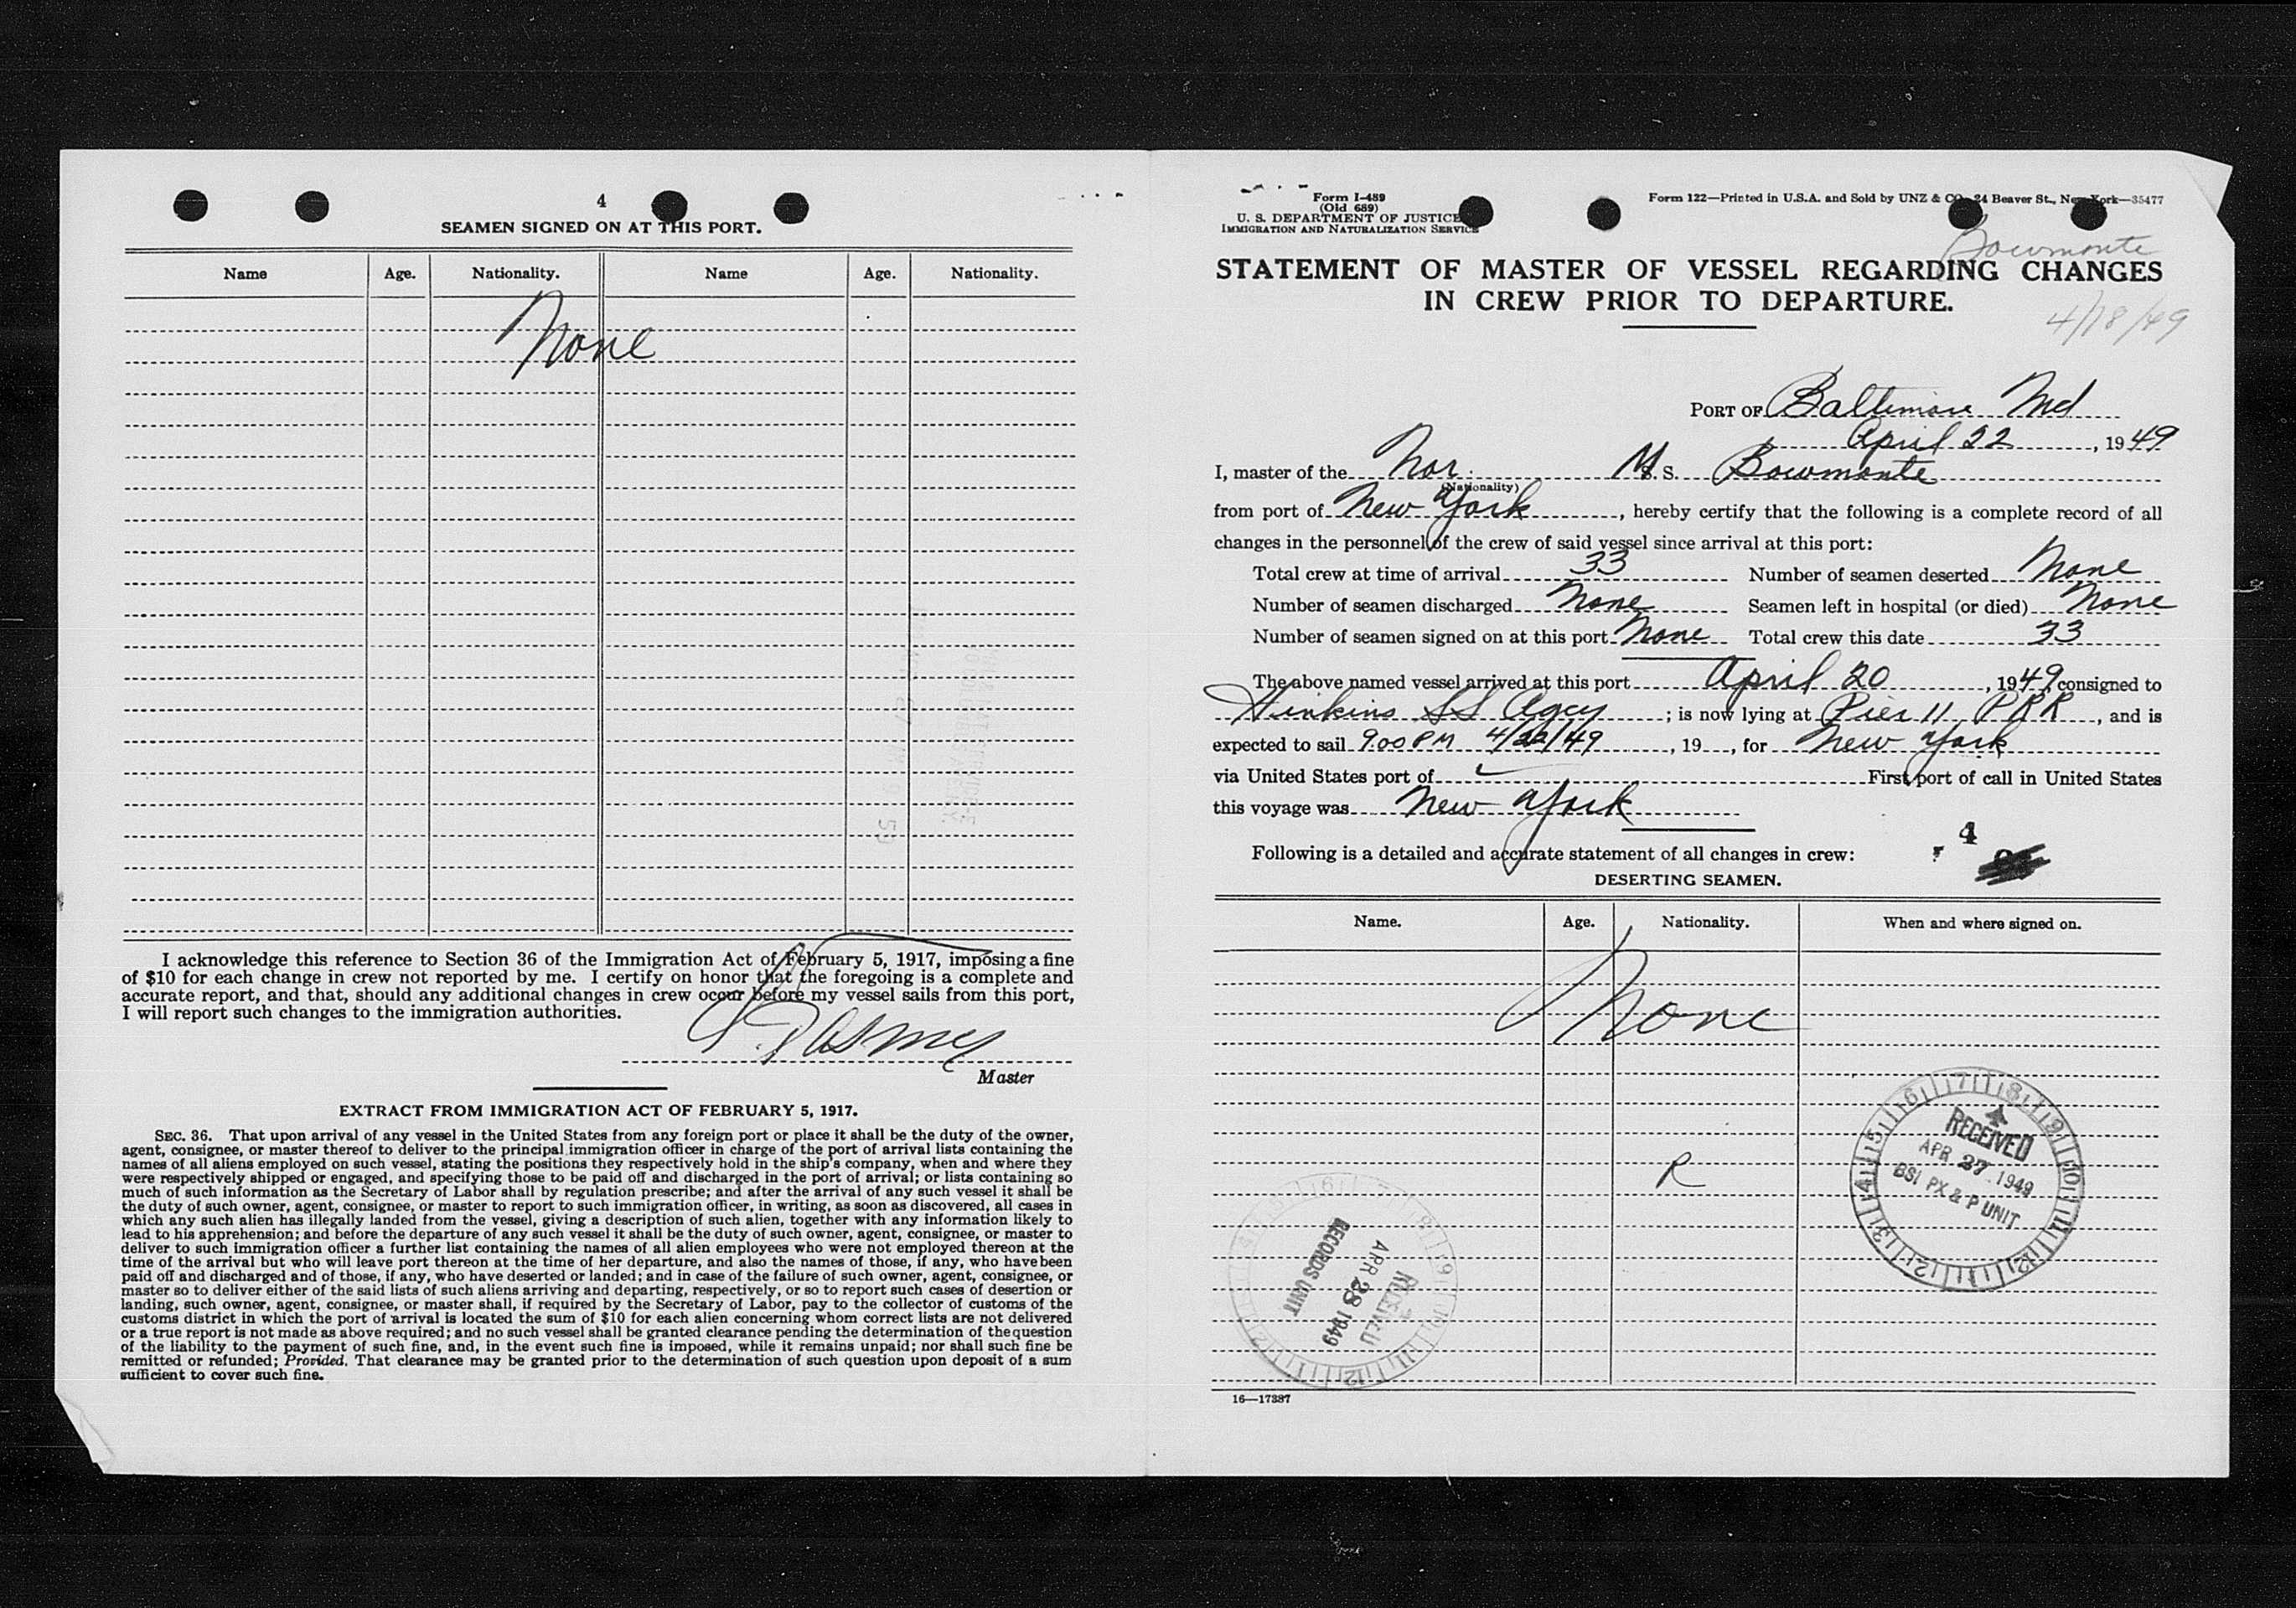 4
SEAMEN SIGNED ON AT THIS PORT.
Name Age. Nationality. Name Age. Nationality.
None
I acknowledge this reference to Section 36 of the Immigration Act of February 5, 1917, imposing a fine
of $10 for each change in crew not reported by me. I certify on honor that the foregoing is a complete and
accurate report, and that, should any additional changes in crew occur before my vessel sails from this port,
I will report such changes to the immigration authorities.
Master
EXTRACT FROM IMMIGRATION ACT OF FEBRUARY 5, 1917.
SEC. 36. That upon arrival of any vessel in the United States from any foreign port or place it shall be the duty of the owner,
agent, consignee, or master thereof to deliver to the principal immigration officer in charge of the port of arrival lists containing the
names of all aliens employed on such vessel, stating the positions they respectively hold in the ship's company, when and where they
were respectively shipped or engaged, and specifying those to be paid off and discharged in the port of arrival; or lists containing so
much of such information as the Secretary of Labor shall by regulation prescribe; and after the arrival of any such vessel it shall be
the duty of such owner, agent, consignee, or master to report to such immigration officer, in writing, as soon as discovered, all cases in
which any such alien has illegally landed from the vessel, giving a description of such alien, together with any information likely to
lead to his apprehension; and before the departure of any such vessel it shall be the duty of such owner, agent, consignee, or master to
deliver to such immigration officer a further list containing the names of all alien employees who were not employed thereon at the
time of the arrival but who will leave port thereon at the time of her departure, and also the names of those, if any, who have been
paid off and discharged and of those, if any, who have deserted or landed; and in case of the failure of such owner, agent, consignee, or
master so to deliver either of the said lists of such aliens arriving and departing, respectively, or so to report such cases of desertion or
landing, such owner, agent, consignee, or master shall, if required by the Secretary of Labor, pay to the collector of customs of the
customs district in which the port of arrival is located the sum of $10 for each alien concerning whom correct lists are not delivered
or a true report is not made as above required; and no such vessel shall be granted clearance pending the determination of the question
of the liability to the payment of such fine, and, in the event such fine is imposed, while it remains unpaid; nor shall such fine be
remitted or refunded; Provided, That clearance may be granted prior to the determination of such question upon deposit of a sum
sufficient to cover such fine.
Form I-489
(Old 689)
U. S. DEPARTMENT OF JUSTICE
IMMIGRATION AND NATURALIZATION SERVICE
Form 122—Printed in U.S.A. and Sold by UNZ & CO. 24 Beaver St., New York—35477
Bowmonte
STATEMENT OF MASTER OF VESSEL REGARDING CHANGES
IN CREW PRIOR TO DEPARTURE.
4/18/49
PORT OF Baltimore Md
April 22, 1949
I, master of the Nor. M.S. Bowmonte
(Nationality)
from port of New York, hereby certify that the following is a complete record of all
changes in the personnel of the crew of said vessel since arrival at this port:
Total crew at time of arrival 33 Number of seamen deserted None
Number of seamen discharged None Seamen left in hospital (or died) None
Number of seamen signed on at this port None Total crew this date 33
The above named vessel arrived at this port April 20, 1949, consigned to
Hinkins SS Agcy; is now lying at Pier 11 PRR, and is
expected to sail 9.00 PM 4/22/49, 19, for New York
via United States port of First port of call in United States
this voyage was New York
4
Following is a detailed and accurate statement of all changes in crew:
DESERTING SEAMEN.
Name. Age. Nationality. When and where signed on.
None
R
RECEIVED
APR 27 1949
BSI PX & P UNIT
RECEIVED
APR 28 1949
RECORDS UNIT
16—17387